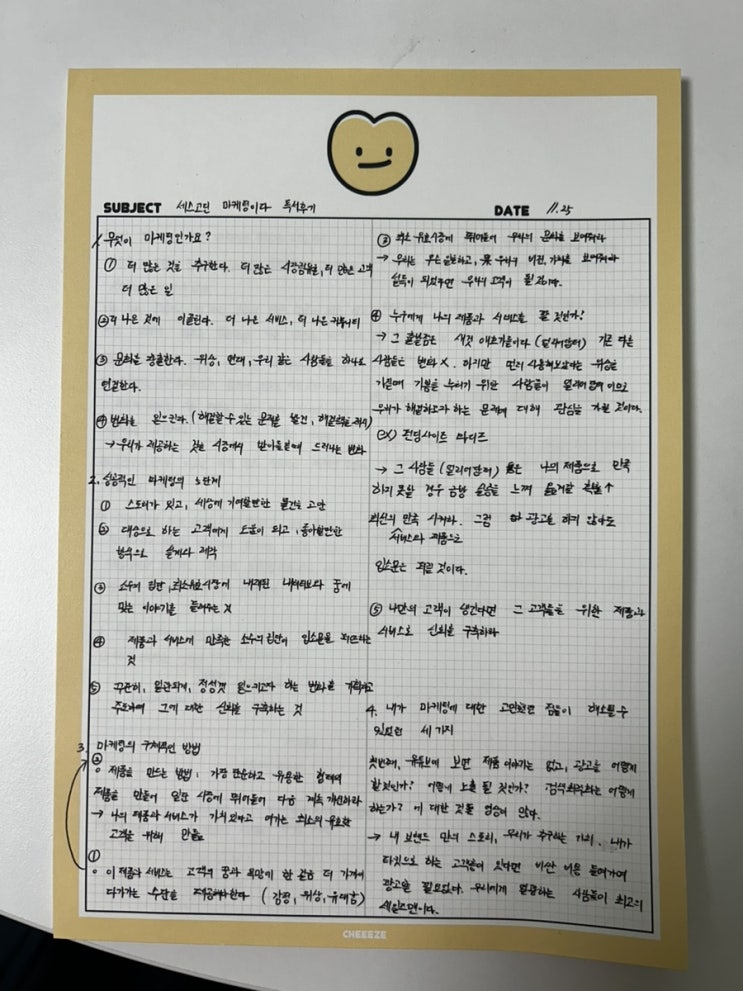 SUBJECT 세스고딘 마케팅이다 독서후기
DATE 11.25
1. 무엇이 마케팅인가요?
① 더 많은 것을 추구한다. 더 많은 시장점유율, 더 많은 고객
더 많은 일
② 더 나은 것에 이끌린다. 더 나은 서비스, 더 나은 커뮤니티
③ 문화를 창출한다. 위상, 연대, 우리 같은 사람들을 하나로
연결한다.
④ 변화를 일으킨다. (해결할 수 있는 문제를 발견, 해결책을 제시)
→ 우리가 제공하는 것을 시장에서 받아들일때 드러나는 변화
2. 성공적인 마케팅의 5단계
① 스토리가 있고, 세상에 기여할만한 물건을 고안
② 대상으로 하는 고객에게 도움이 되고, 좋아할만한
방식으로 설계와 제작
③ 소수의 집단, 최소유효시장에 내재된 내러티브와 꿈에
맞는 이야기를 들려주는 것
④ 제품과 서비스에 만족한 소수의 집단이 입소문을 퍼뜨리는
것
⑤ 꾸준히, 일관되게, 정성껏 일으키고자 하는 변화를 기획하고
주도하며 그에 대한 신뢰를 구축하는 것
3. 마케팅의 구체적인 방법
②
제품을 만드는 방법: 가장 단순하고 유용한 형태의
제품을 만들어 일단 시장에 뛰어들어 다음 계속 개선하라
→ 나의 제품과 서비스가 가치있다고 여기는 최소의 유효한
고객을 위해 만들
①
이 제품과 서비스는 고객의 꿈과 욕망에 한 걸음 더 가까이
다가가는 수단을 제공해야한다 (감정, 위상, 유대감)
③ 최소 유효시장에 뛰어들어 우리의 문화를 보여줘라
→ 우리는 무슨 일을하고, 우리의 비전, 가치를 보여줘라
설득이 되었다면 우리의 고객이 될 것이다.
④ 누구에게 나의 제품과 서비스를 팔 것인가?
→ 그 출발점은 새것 애호가들이다 (얼리어답터) 기존 다른
사람들은 변화 X. 하지만 먼저 사용해보았다는 위상을
기쁨에 기분을 누리기 위한 사람들이 얼리어답터 이므로
우리가 해결하고자 하는 문제에 대해 관심을 가질 것이다.
ex) 펀딩사이트 와디즈
→ 그 사람들 (얼리어답터) 은 나의 제품으로 만족
하지 못할 경우 금방 싫증을 느껴 옮겨갈 확률↑
최선의 만족 시켜라. 그럼 광고를 하지 않아도
서비스와 제품으로
입소문은 퍼질 것이다.
⑤ 나만의 고객이 생긴다면 그 고객들을 위한 제품과
서비스로 신뢰를 구축하라
4. 내가 마케팅에 대한 고민했던 점들이 해소될 수
있었던 세 가지
첫번째, 유튜브에 보면 제품 이야기는 없고, 광고를 어떻게
할것인가? 어떻게 노출 될 것인가? 검색최적화는 어떻게
하는가? 에 대한 것들 영상이 많다.
→ 내 브랜드 만의 스토리, 우리가 추구하는 가치. 내가
타깃으로 하는 고객층이 있다면 비싼 비용 들여가며
광고할 필요없다. 우리에게 열광하는 사람들이 최고의
세일즈맨이다.
CHEEEZE